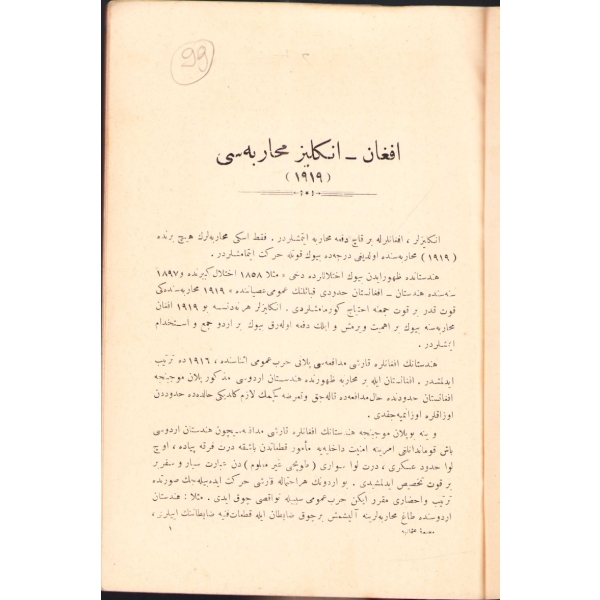 99
افغان ـ انكليز محاربه‌سى
( ١٩١٩ )
انكليزلر ، افغانلرله بر قاچ دفعه محاربه ايتمشلردر . فقط اسكى محاربه‌لرك هيچ برنده
( ١٩١٩ ) محاربه‌سنده اولديغى درجه‌ده بيوك قوتله حركت ايتمامشلردر .
هندستانده ظهور ايدن بيوك اختلاللرده دخى « مثلا ١٨٥٨ اختلال كبيرنده و ١٨٩٧
سنه‌سنده هندستان ـ افغانستان حدودى قبائلنك عمومى عصياننده » ١٩١٩ محاربه‌سنده‌كى
قوت قدر بر قوت جمعنه احتياج كورمامشلردى . انكليزلر هر نه‌دنسه بو ١٩١٩ افغان
محاربه‌سنه بيوك بر اهميت ويرمش و ايلك دفعه اوله‌رق بيوك بر اردو جمع و استخدام
ايتمشلردر .
هندستانك افغانلره قارشى مدافعه‌سى پلانى حرب عمومى اثناسنده ، ١٩١٦ ده ترتيب
ايدلمشدر . افغانستان ايله بر محاربه ظهورنده هندستان اردوسى مذكور پلان موجبنجه
افغانستان حدودنده حال مدافعه‌ده قاله‌جق وتعرضه كچمك لازم كلديكى حالده‌ده حدوددن
اوزاقلره اوزانميه‌جقدى .
و ينه بو پلان موجبنجه هندستانك افغانلره قارشى مدافعه‌سيچون هندستان اردوسى
باش قوماندانلغى امرينه امنيت داخليه‌يه مأمور قطعاتدن باشقه درت فرقه پياده ، اوچ
لوا حدود عسكرى ، درت لوا سوارى ( طوپجى غير معلوم ) دن عبارت سيار و سفربر
بر قوت تخصيص ايدلمشدى . بو اردونك هر احتماله قارشى حركت ايده‌بيله‌جك صورتده
ترتيب واحضارى مقرر ايكن حرب عمومى سببيله نواقصى چوق ايدى . مثلا : هندستان
اردوسنده طاغ محاربه‌لرينه آليشمش بر چوق ضابطان ايله قطعات فنيه ضابطاننك
١